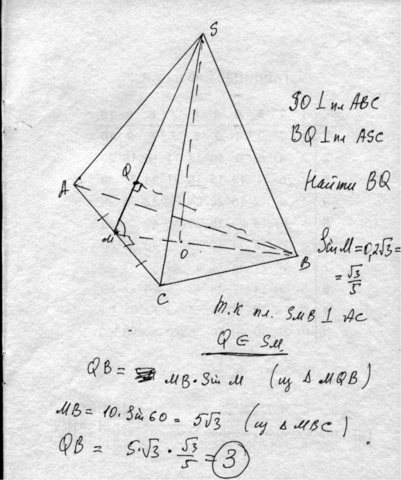 S
SO ⊥ пл ABC
BQ ⊥ пл ASC
Найти BQ
Q
A
M
O
B
C
Sin M = 0,2√3 =
= √3/5
т.к пл. SMB ⊥ AC
Q ∈ SM
QB = MB · Sin M (из Δ MQB)
MB = 10 · Sin 60 = 5√3 (из Δ MBC)
QB = 5·√3 · √3/5 = 3